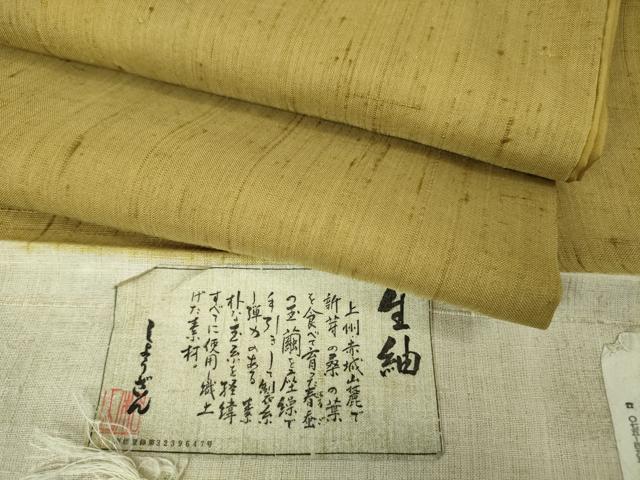 生紬
上州赤城山麓で
新芽の桑の葉
を食べて育った春蚕
の玉繭を座繰で
手びきして製糸
し弾力のある素
朴な玉糸を経緯
すべてに使用織上
げた素材。
しょうざん
登録第3239647号